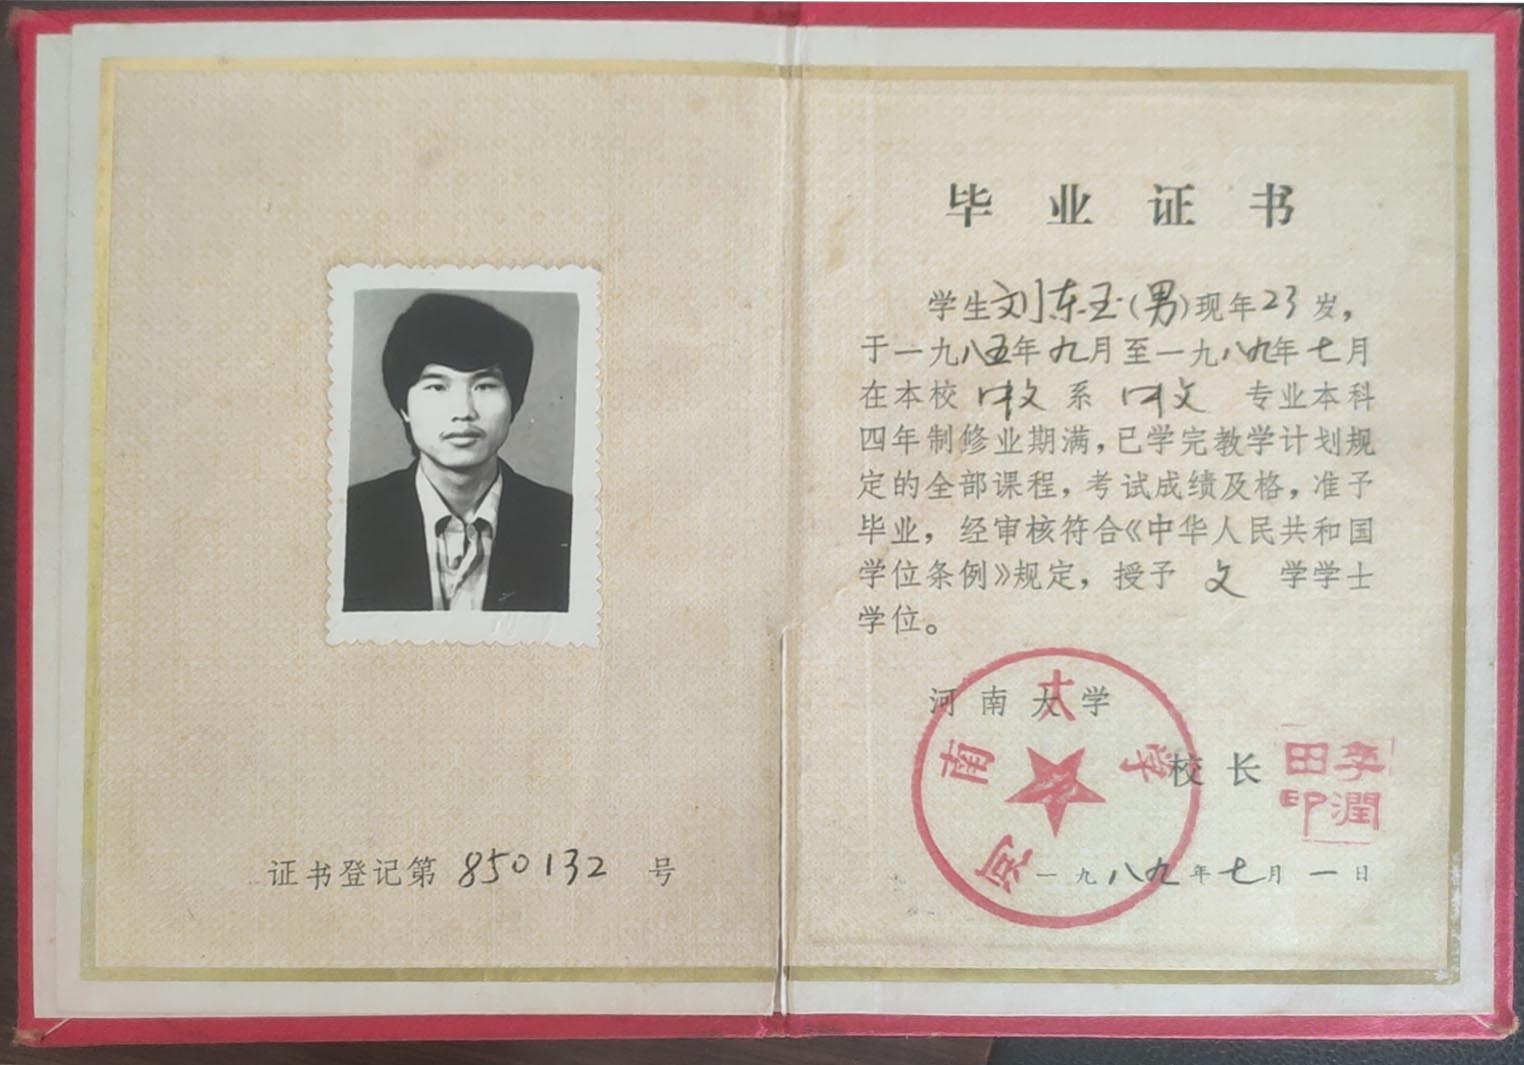 证书登记第 850132 号
毕业证书
学生刘东玉(男)现年23岁，
于一九八五年九月至一九八九年七月
在本校中文系中文专业本科
四年制修业期满，已学完教学计划规
定的全部课程，考试成绩及格，准予
毕业，经审核符合《中华人民共和国
学位条例》规定，授予文学学士
学位。
河南大学
河南大学
校长
李潤田印
一九八九年七月一日